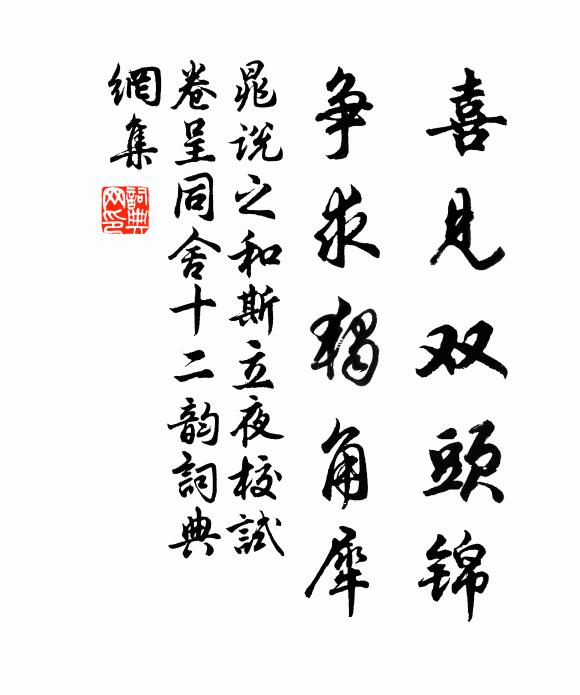 喜见双頭锦
争求独角犀
晁说之和斯立夜校試
卷呈同舍十二韵詞典
網集
詞典
网印